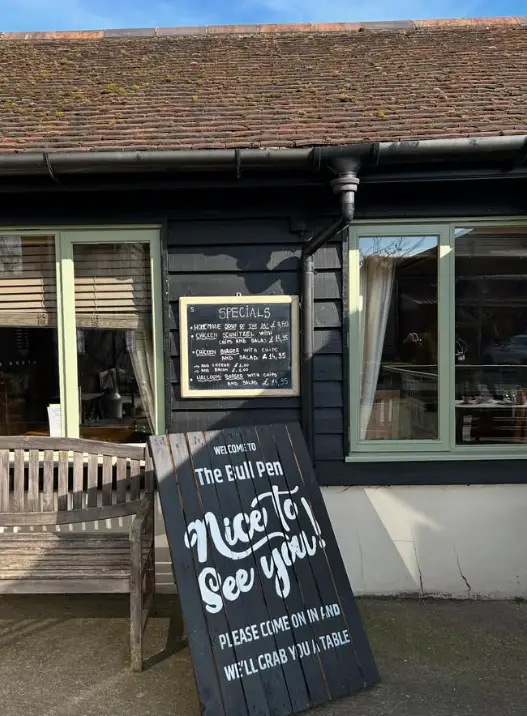 SPECIALS
HOMEMADE SOUP OF THE DAY
CHICKEN SCHNITZEL WITH
CHIPS AND SALAD £14.95
CHICKEN BURGER WITH CHIPS
AND SALAD £14.95
ADD CHEESE £1.00
ADD BACON
HALLOUMI BURGER WITH CHIPS
AND SALAD £14.95
WELCOME TO
The Bull Pen
Nice to
See you!
PLEASE COME ON IN AND
WE'LL GRAB YOU A TABLE